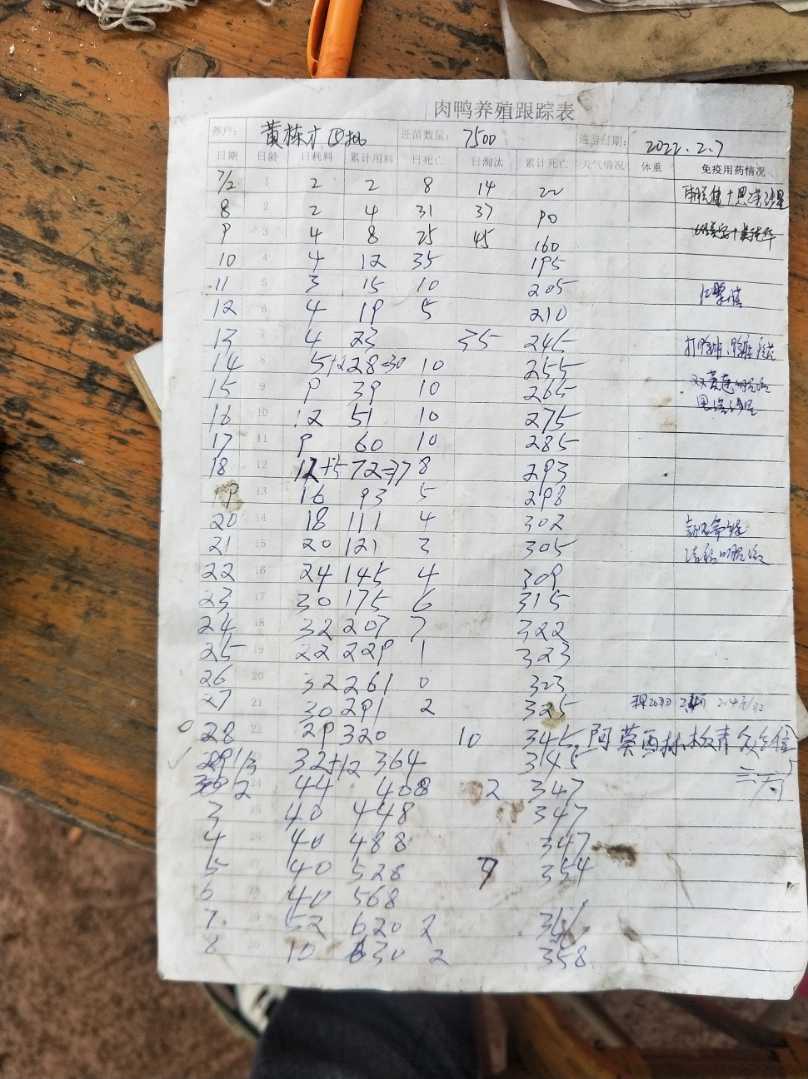 肉鸭养殖跟踪表
养户： 黄栋才 四批 进苗数量： 7500 进苗日期： 2022.2.7
日期 日龄 日耗料 累计用料 日死亡 日淘汰 累计死亡 天气情况 体重 免疫用药情况
7/2 1 2 2 8 14 22
8 2 2 4 31 37 90
9 3 4 8 25 45 160
10 4 4 12 35 195
11 5 3 15 10 205
12 6 4 19 5 210
13 7 4 23 35 245
14 8 5+2 28=30 10 255
15 9 9 39 10 265
16 10 12 51 10 275
17 11 9 60 10 285
18 12 12+5 72=77 8 293
19 13 16 93 5 298
20 14 18 111 4 302
21 15 20 121 3 305
22 16 24 145 4 309
23 17 30 175 6 315
24 18 32 207 7 322
25 19 22 229 1 323
26 20 32 261 0 323
27 21 30 291 2 325
28 22 29 320 10 345 阿莫西林
29 1/3 32+12 364 345
2 24 44 408 2 347
3 25 40 448 347
4 26 40 488 347
5 27 40 528 7 354
6 28 40 568
7 29 52 620 2 356
8 30 10 630 2 358